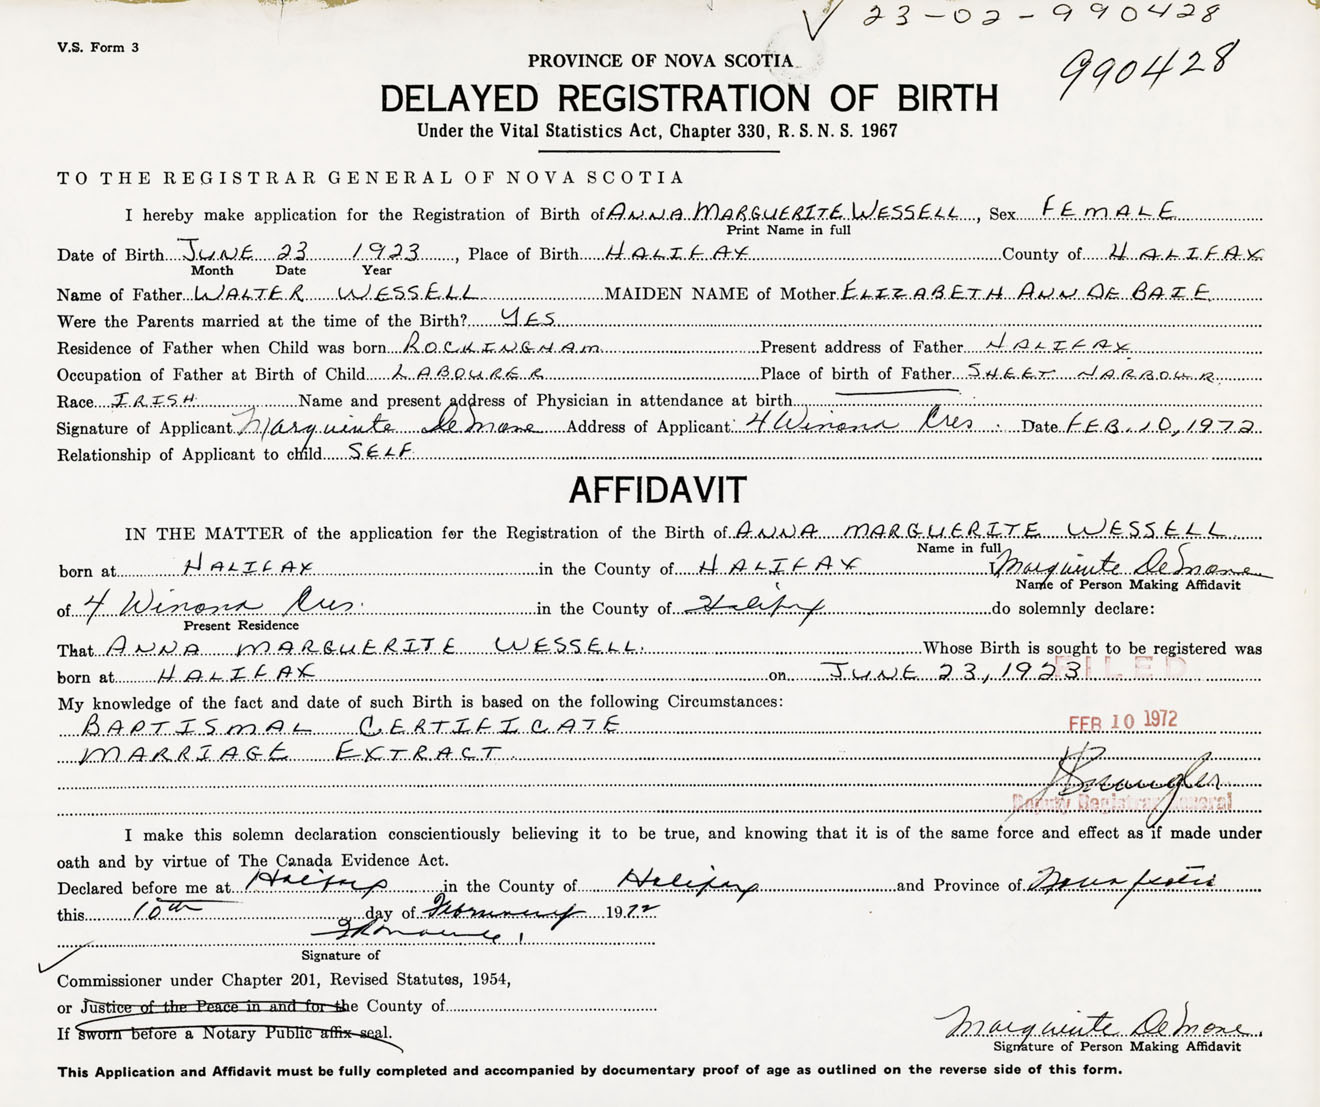 23-02-990428
V.S. Form 3
990428
PROVINCE OF NOVA SCOTIA
DELAYED REGISTRATION OF BIRTH
Under the Vital Statistics Act, Chapter 330, R. S. N. S. 1967
TO THE REGISTRAR GENERAL OF NOVA SCOTIA
I hereby make application for the Registration of Birth of ANNA MARGUERITE WESSELL, Sex FEMALE
Print Name in full
Date of Birth JUNE 23 1923, Place of Birth HALIFAX County of HALIFAX
Month Date Year
Name of Father WALTER WESSELL MAIDEN NAME of Mother ELIZABETH ANN DE BAIE
Were the Parents married at the time of the Birth? YES
Residence of Father when Child was born ROCKINGHAM Present address of Father HALIFAX
Occupation of Father at Birth of Child LABOURER Place of birth of Father SHEET HARBOUR
Race IRISH Name and present address of Physician in attendance at birth
Signature of Applicant Marguerite DeMone Address of Applicant 4 Winona Cres. Date FEB. 10, 1972
Relationship of Applicant to child SELF
AFFIDAVIT
IN THE MATTER of the application for the Registration of the Birth of ANNA MARGUERITE WESSELL
Name in full
born at HALIFAX in the County of HALIFAX I, Marguerite DeMone
Name of Person Making Affidavit
of 4 Winona Cres. in the County of Halifax do solemnly declare:
Present Residence
That ANNA MARGUERITE WESSELL. Whose Birth is sought to be registered was
born at HALIFAX on JUNE 23, 1923
FILED
My knowledge of the fact and date of such Birth is based on the following Circumstances:
BAPTISMAL CERTIFICATE
FEB 10 1972
MARRIAGE EXTRACT
Deputy Registrar General
I make this solemn declaration conscientiously believing it to be true, and knowing that it is of the same force and effect as if made under
oath and by virtue of The Canada Evidence Act.
Declared before me at Halifax in the County of Halifax and Province of Nova Scotia
this 10th day of February 1972
Signature of
Commissioner under Chapter 201, Revised Statutes, 1954,
or Justice of the Peace in and for the County of
If sworn before a Notary Public affix seal.
Marguerite DeMone.
Signature of Person Making Affidavit
This Application and Affidavit must be fully completed and accompanied by documentary proof of age as outlined on the reverse side of this form.